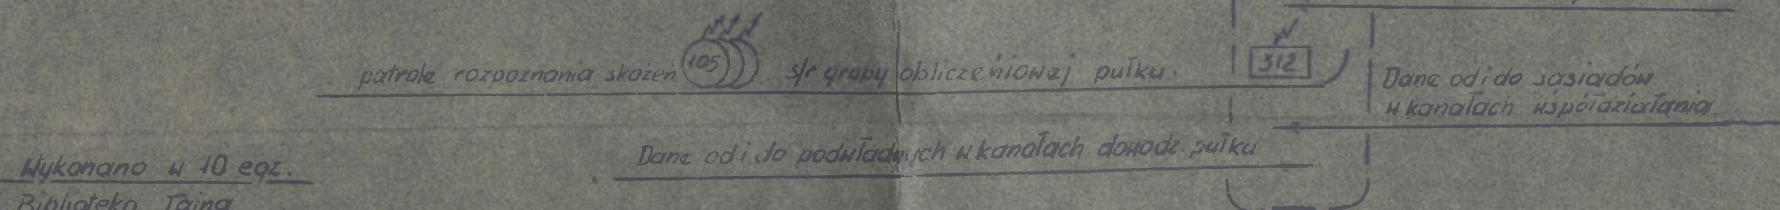 patrole rozpoznania skażeń 105 s/r grupy obliczeniowej pułku.
312
Dane od i do sąsiadów
w kanałach współdziałania
Dane od i do podwładnych w kanałach dowodz. pułku
Wykonano w 10 egz.
Biblioteka Tajna